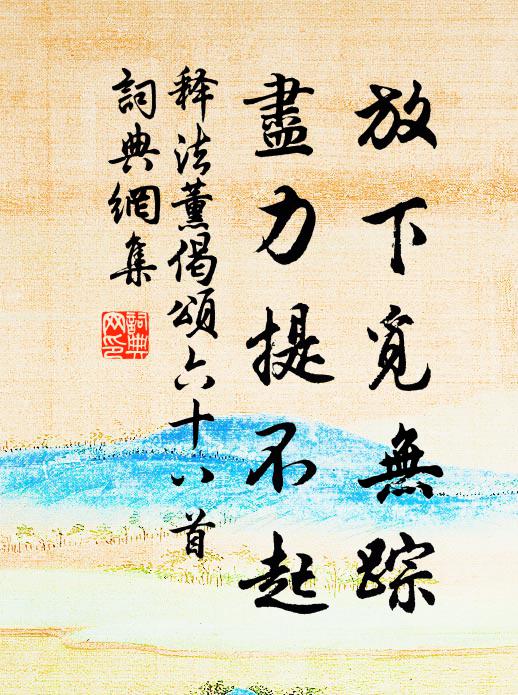 放下覓無踪
盡力提不起
释法薰偈頌六十八首
詞典網集
詞典网印